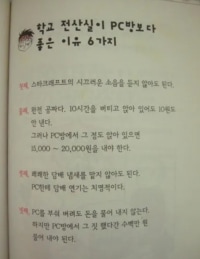 학교 전산실이 PC방보다
좋은 이유 6가지
첫째, 스타크래프트의 시끄러운 소음을 듣지 않아도 된다.
둘째, 완전 공짜다. 10시간을 버티고 앉아 있어도 10원도
안 낸다.
그러나 PC방에서 그 정도 앉아 있으면
15,000 ~ 20,000원을 내야 한다.
셋째, 퀘퀘한 담배 냄새를 맡지 않아도 된다.
PC한테 담배 연기는 치명적이다.
넷째, PC를 부숴 버려도 돈을 물어 내지 않는다.
하지만 PC방에서 그 짓 했다간 수백만 원
물어 내야 된다.